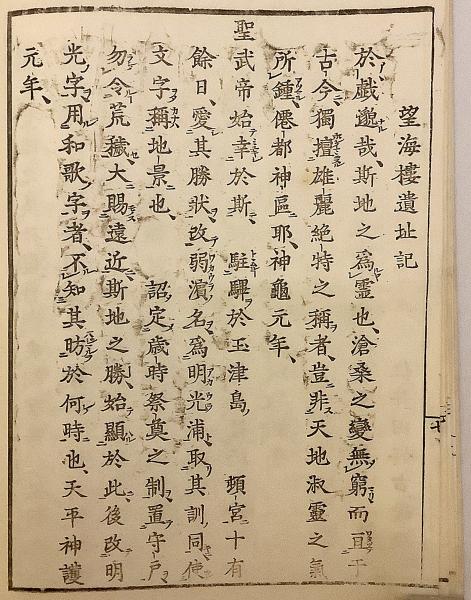 望海樓遺址記
於戲邈哉、斯地之爲靈也、滄桑之變無窮而亘于
古今、獨擅雄麗絶特之稱者、豈非天地淑靈之氣
所鍾僊都神區耶、神龜元年、
聖武帝始幸於斯、　駐驆於玉津島　　頓宮十有
餘日、愛其勝狀、改弱濵名爲明光浦、取其訓同、使
文字稱地景也、　詔定歲時祭奠之制、置守戶
勿令荒穢、大賜遠近、斯地之勝、始顯於此、後改明
光字用和歌字者、不知其昉於何時也、天平神護
元年、